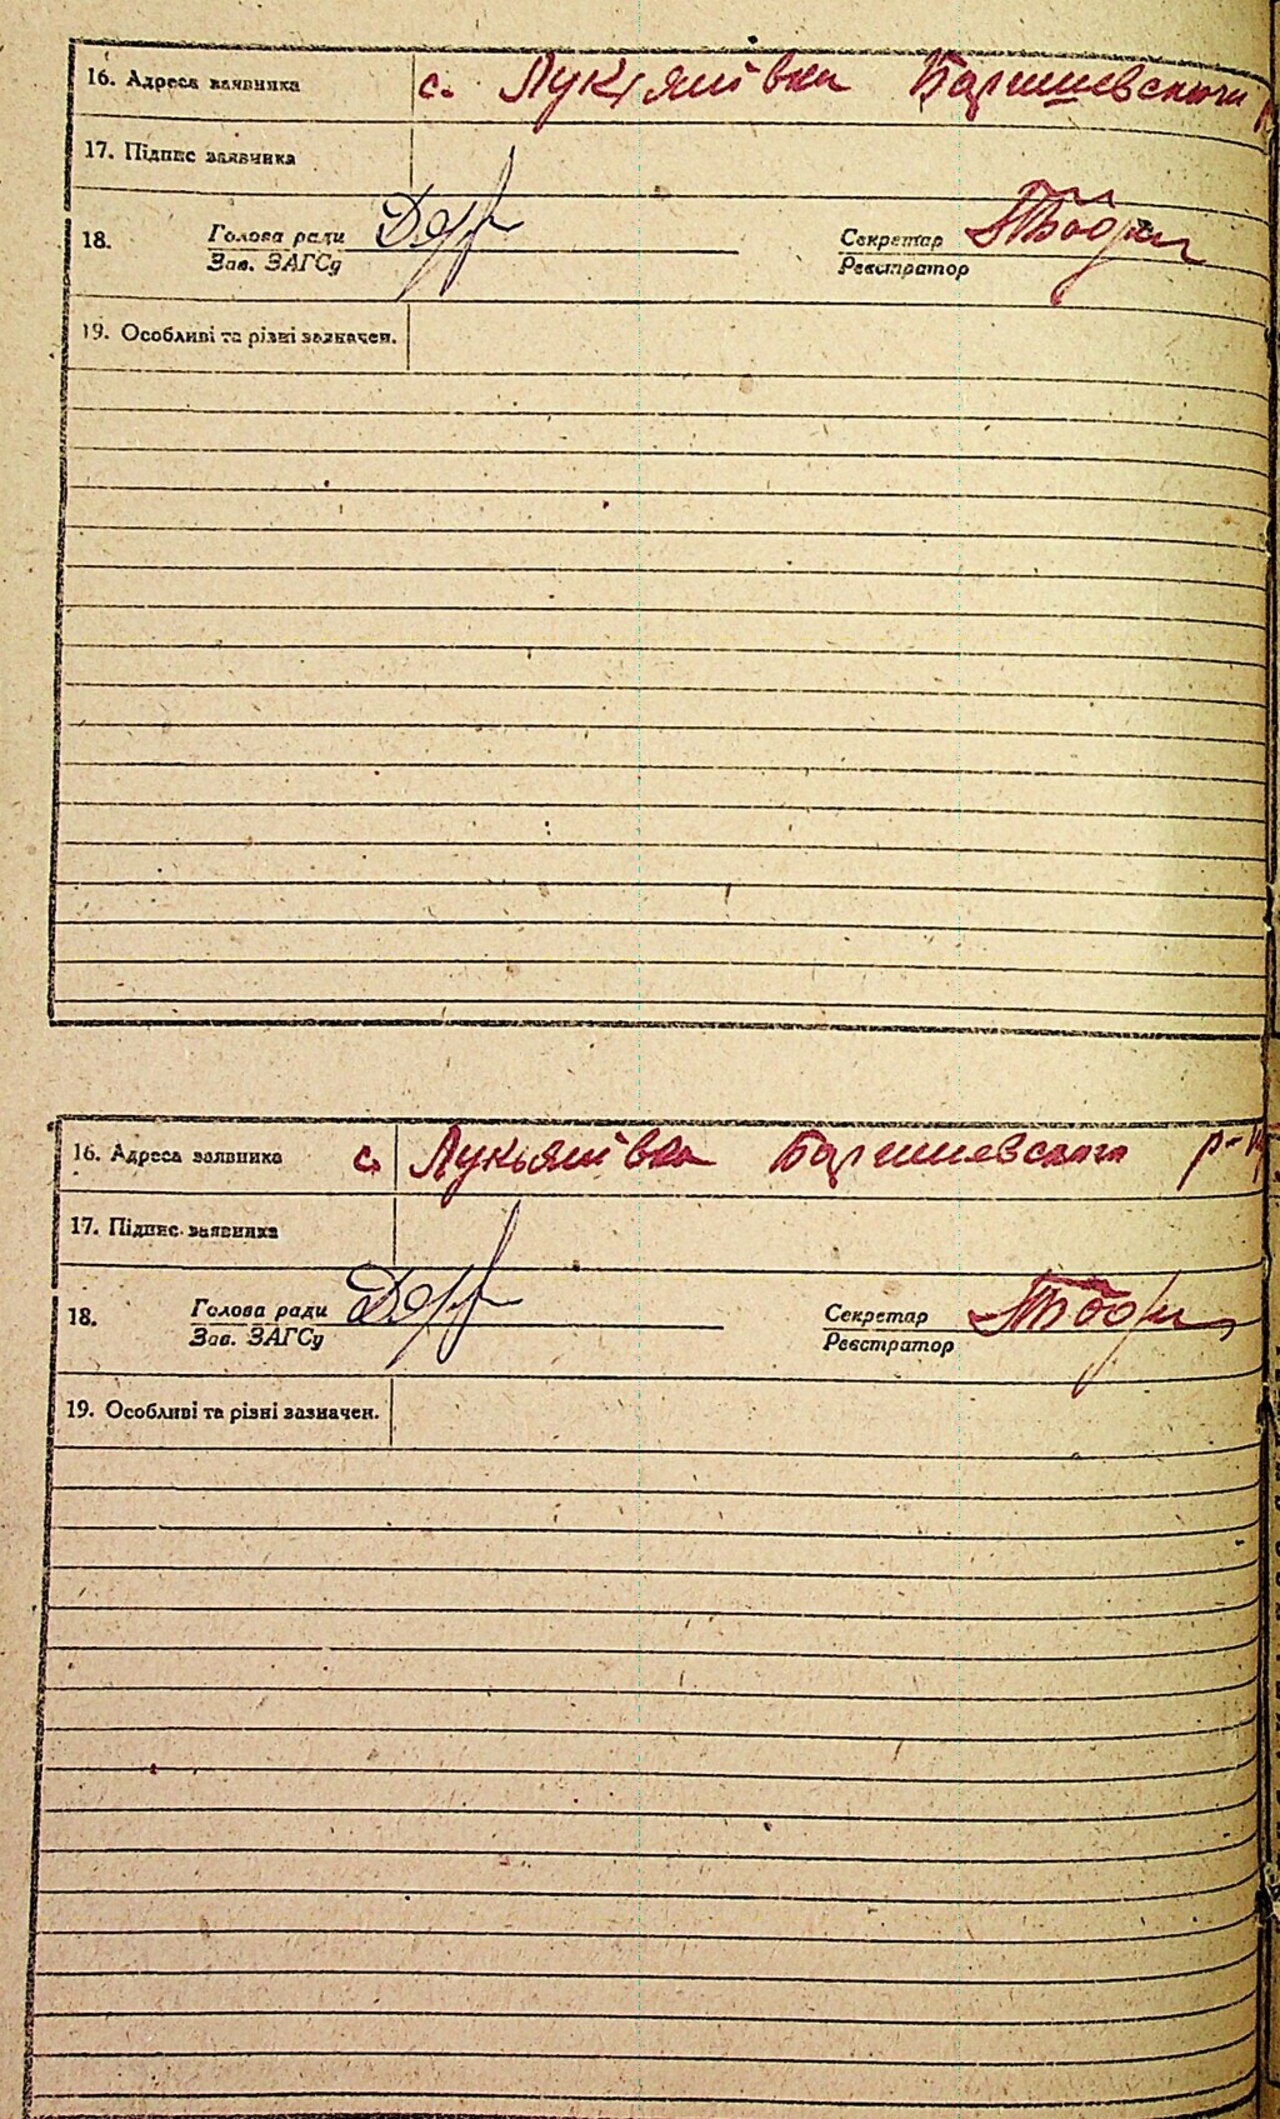 16. Адреса заявника с. Лук'янівка Баришевского
17. Підпис заявника
18. Голова ради Секретар
Зав. ЗАГСу Реєстратор
19. Особливі та різні зазначен.
16. Адреса заявника с. Лукьянівка Баришевского р-н
17. Підпис заявника
18. Голова ради Секретар
Зав. ЗАГСу Реєстратор
19. Особливі та різні зазначен.